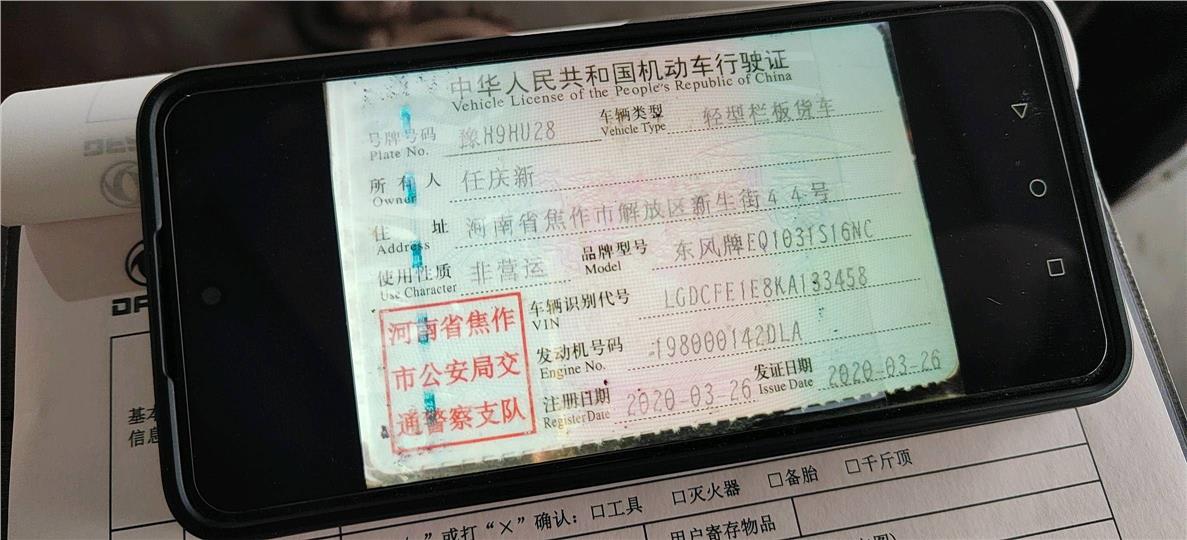 中华人民共和国机动车行驶证
Vehicle License of the People's Republic of China
号牌号码 豫H9HU28 车辆类型 轻型栏板货车
Plate No. Vehicle Type
所有人 任庆新
Owner
住址 河南省焦作市解放区新生街44号
Address
使用性质 非营运 品牌型号 东风牌EQ1031S16NC
Use Character Model
车辆识别代号 LGDCFE1E8KA133458
VIN
发动机号码 198000142DLA
Engine No.
注册日期 2020-03-26 发证日期 2020-03-26
Register Date Issue Date
河南省焦作
市公安局交
通警察支队
基本
信息
”或打“×”确认：□工具 □灭火器 □备胎 □千斤顶
用户寄存物品